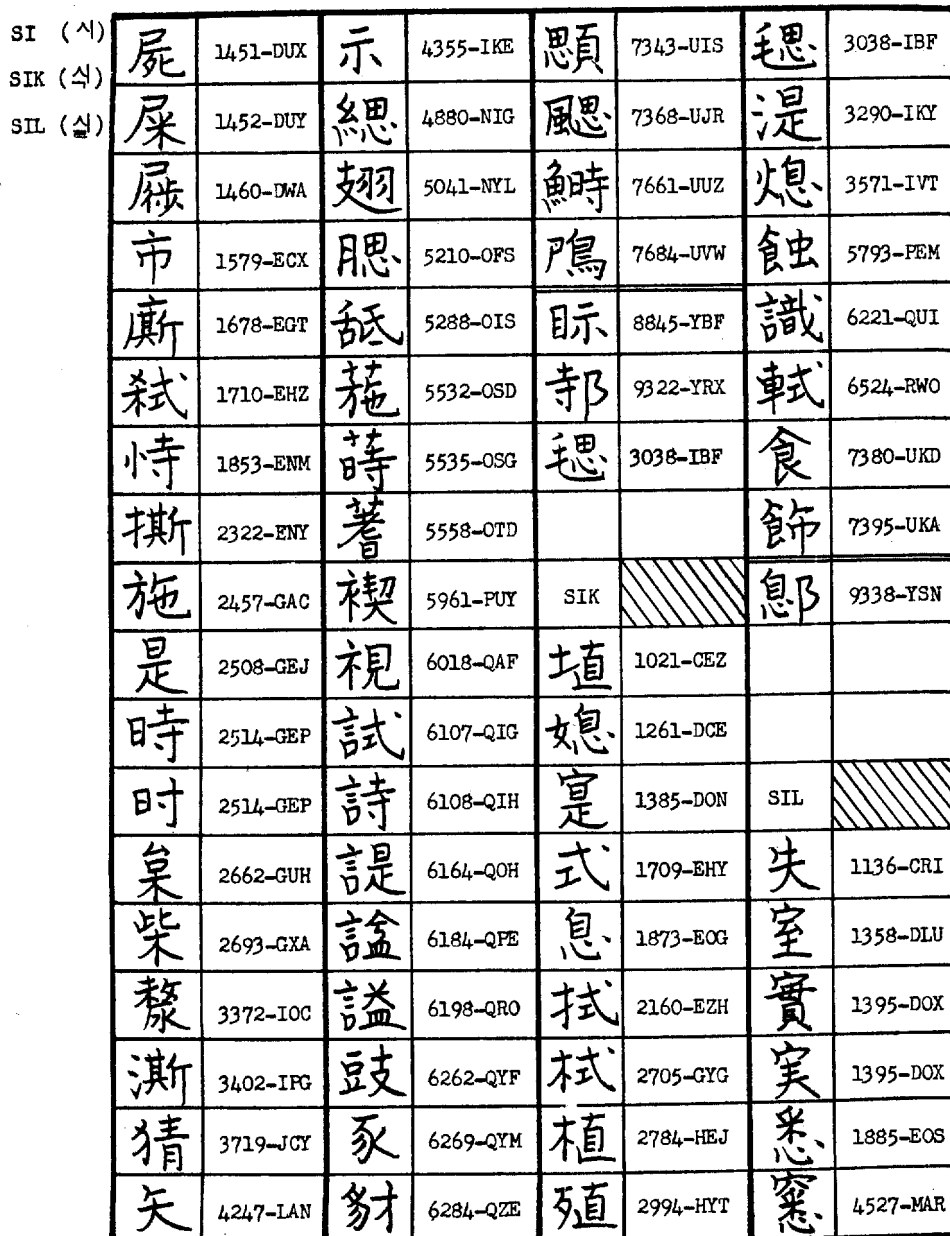 SI (시)
SIK (식)
SIL (실)
屍 1451-DUX 示 4355-IKE 顋 7343-UIS 毸 3038-IBF
屎 1452-DUY 緦 4880-NIG 颸 7368-UJR 湜 3290-IKY
屣 1460-DWA 翅 5041-NYL 鰣 7661-UUZ 熄 3571-IVT
市 1579-ECX 腮 5210-OFS 鳲 7684-UVW 蝕 5793-PEM
廝 1678-EGT 舐 5288-OIS 眎 8845-YBF 識 6221-QUI
弑 1710-EHZ 葹 5532-OSD 邿 9322-YRX 軾 6524-RWO
恃 1853-ENM 蒔 5535-OSG 毸 3038-IBF 食 7380-UKD
撕 2322-ENY 蓍 5558-OTD 飾 7395-UKA
施 2457-GAC 禊 5961-PUY SIK 鄎 9338-YSN
是 2508-GEJ 視 6018-QAF 埴 1021-CEZ
時 2514-GEP 試 6107-QIG 媳 1261-DCE
时 2514-GEP 詩 6108-QIH 寔 1385-DON SIL
枲 2662-GUH 諟 6164-QOH 式 1709-EHY 失 1136-CRI
柴 2693-GXA 諡 6184-QPE 息 1873-EOG 室 1358-DLU
漦 3372-IOC 謚 6198-QRO 拭 2160-EZH 實 1395-DOX
澌 3402-IPG 豉 6262-QYF 栻 2705-GYG 実 1395-DOX
猜 3719-JCY 豕 6269-QYM 植 2784-HEJ 悉 1885-EOS
矢 4247-LAN 豺 6284-QZE 殖 2994-HYT 窸 4527-MAR